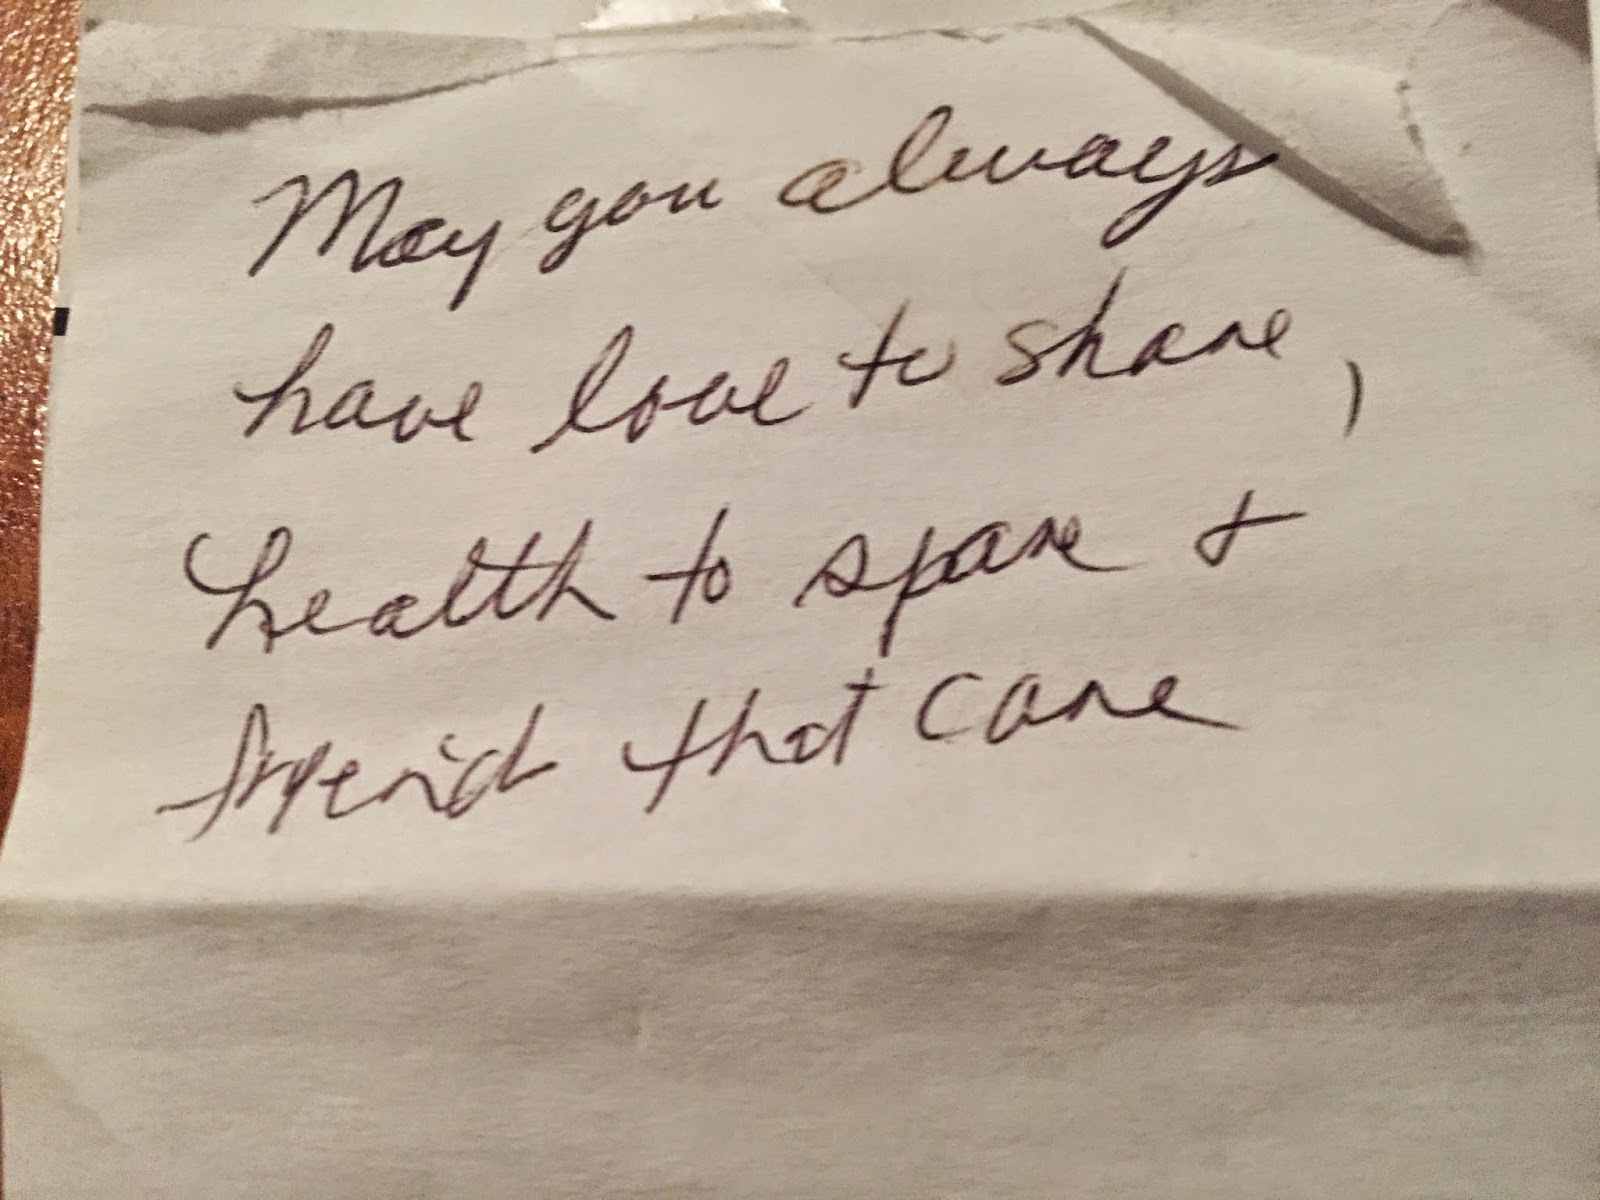 May you always
have love to share,
health to spare &
friend that care